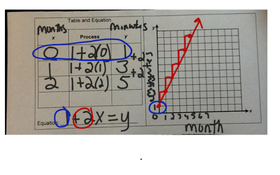 Table and Equation
months minutes
x Process y
0 1+2(0) 1
+2
1 1+2(1) 3
+2
2 1+2(2) 5
Equation: 1+2x=y
0 1 2 3 4 5 6 7
month